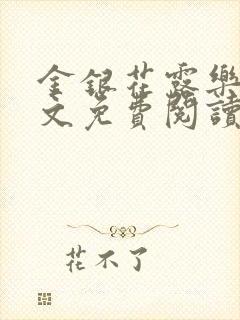 金銀花露樂
文免費閱讀
花不了